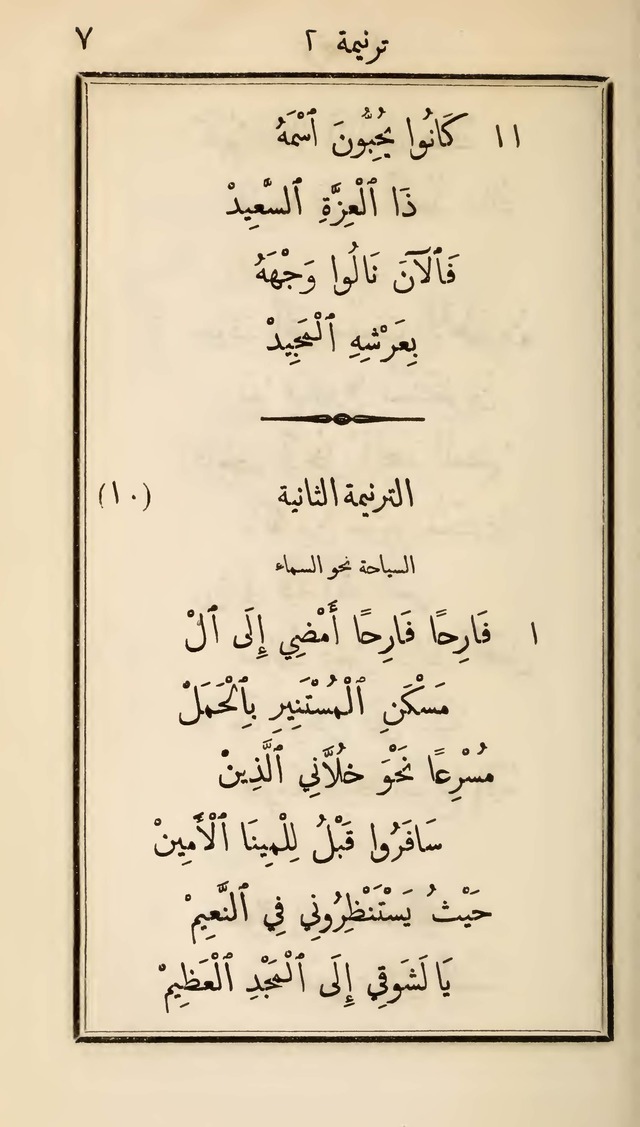 ترنيمة ٢ ٧
١١ كَانُوا يُحِبُّونَ ٱسْمَهُ
ذَا ٱلْعِزَّةِ ٱلسَّعِيدْ
فَٱلْآنَ نَالُوا وَجْهَهُ
بِعَرْشِهِ ٱلْمَجِيدْ
الترنيمة الثانية (١٠)
السياحة نحو السماء
١ فَارِحًا فَارِحًا أَمْضِي إِلَى ٱلْ
مَسْكَنِ ٱلْمُسْتَنِيرِ بِٱلْحَمَلْ
مُسْرِعًا نَحْوَ خُلَّانِي ٱلَّذِينْ
سَافَرُوا قَبْلُ لِلْمِينَا ٱلْأَمِينْ
حَيْثُ يَسْتَنْظِرُونِي فِي ٱلنَّعِيمْ
يَا لَشَوقِي إِلَى ٱلْمَجْدِ ٱلْعَظِيمْ